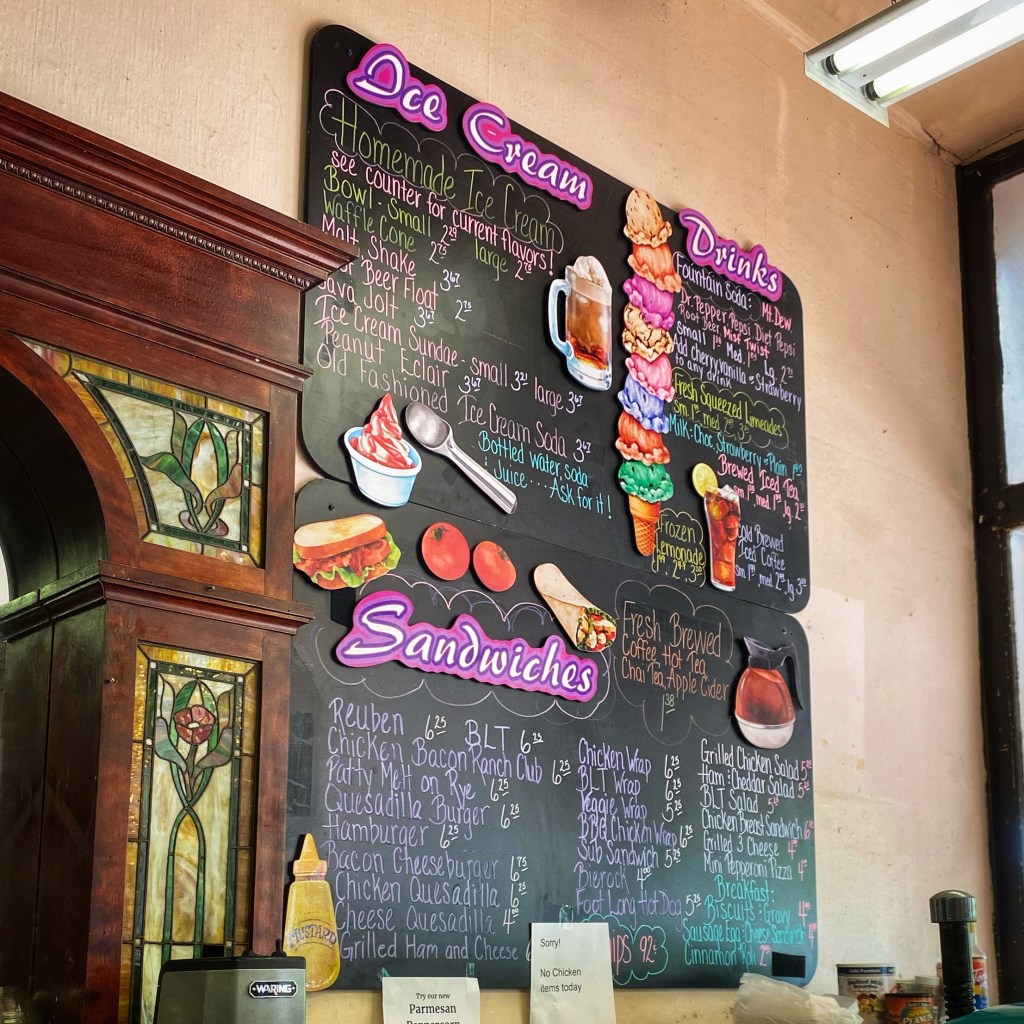 Ice Cream
Homemade Ice Cream
see counter for current flavors!
Bowl - Small 2.29 large 2.75
Waffle Cone 2.75
Malt, Shake 3.67
Beer Float 3.67
Java Jolt 2.75
Ice Cream Sundae - small 3.21 large 3.67
Peanut Eclair 3.67
Old Fashioned Ice Cream Soda 3.67
Bottled water, soda
Juice.... Ask for it!
Drinks
Fountain Soda: Mt. Dew
Dr. Pepper Pepsi Diet Pepsi
Root Beer Mist Twist
Small Med. Lg.
Add cherry, vanilla or Strawberry
to any drink
Fresh Squeezed Limeades
sm. med.
Milk: Choc, Strawberry or Plain
Brewed Iced Tea
sm. med. lg.
Frozen
Lemonade
Cold Brewed
Iced Coffee
sm. med. lg.
Sandwiches
Fresh Brewed
Coffee Hot Tea
Chai Tea, Apple Cider
1.38
Reuben 6.25 BLT 6.25
Chicken Bacon Ranch Club 6.25
Patty Melt on Rye 6.25
Quesadilla Burger 6.25
Hamburger 6.25
Bacon Cheeseburger 6.75
Chicken Quesadilla 6.25
Cheese Quesadilla
Grilled Ham and Cheese
Chicken Wrap 6.25
BLT Wrap 6.25
Veggie Wrap 5.25
BBQ Chicken Wrap 6.25
Sub Sandwich 5.25
Bierock
Foot Long Hot Dog 5.25
92¢
Grilled Chicken Salad
Ham & Cheddar Salad
BLT Salad
Chicken Breast Sandwich
Grilled 3 Cheese
Mini Pepperoni Pizza
Breakfast:
Biscuits & Gravy
Sausage Egg & Cheese Sandwich
Cinnamon Roll
MUSTARD
WARING
Try our new
Parmesan
Peppercorn
Sorry!
No Chicken
items today